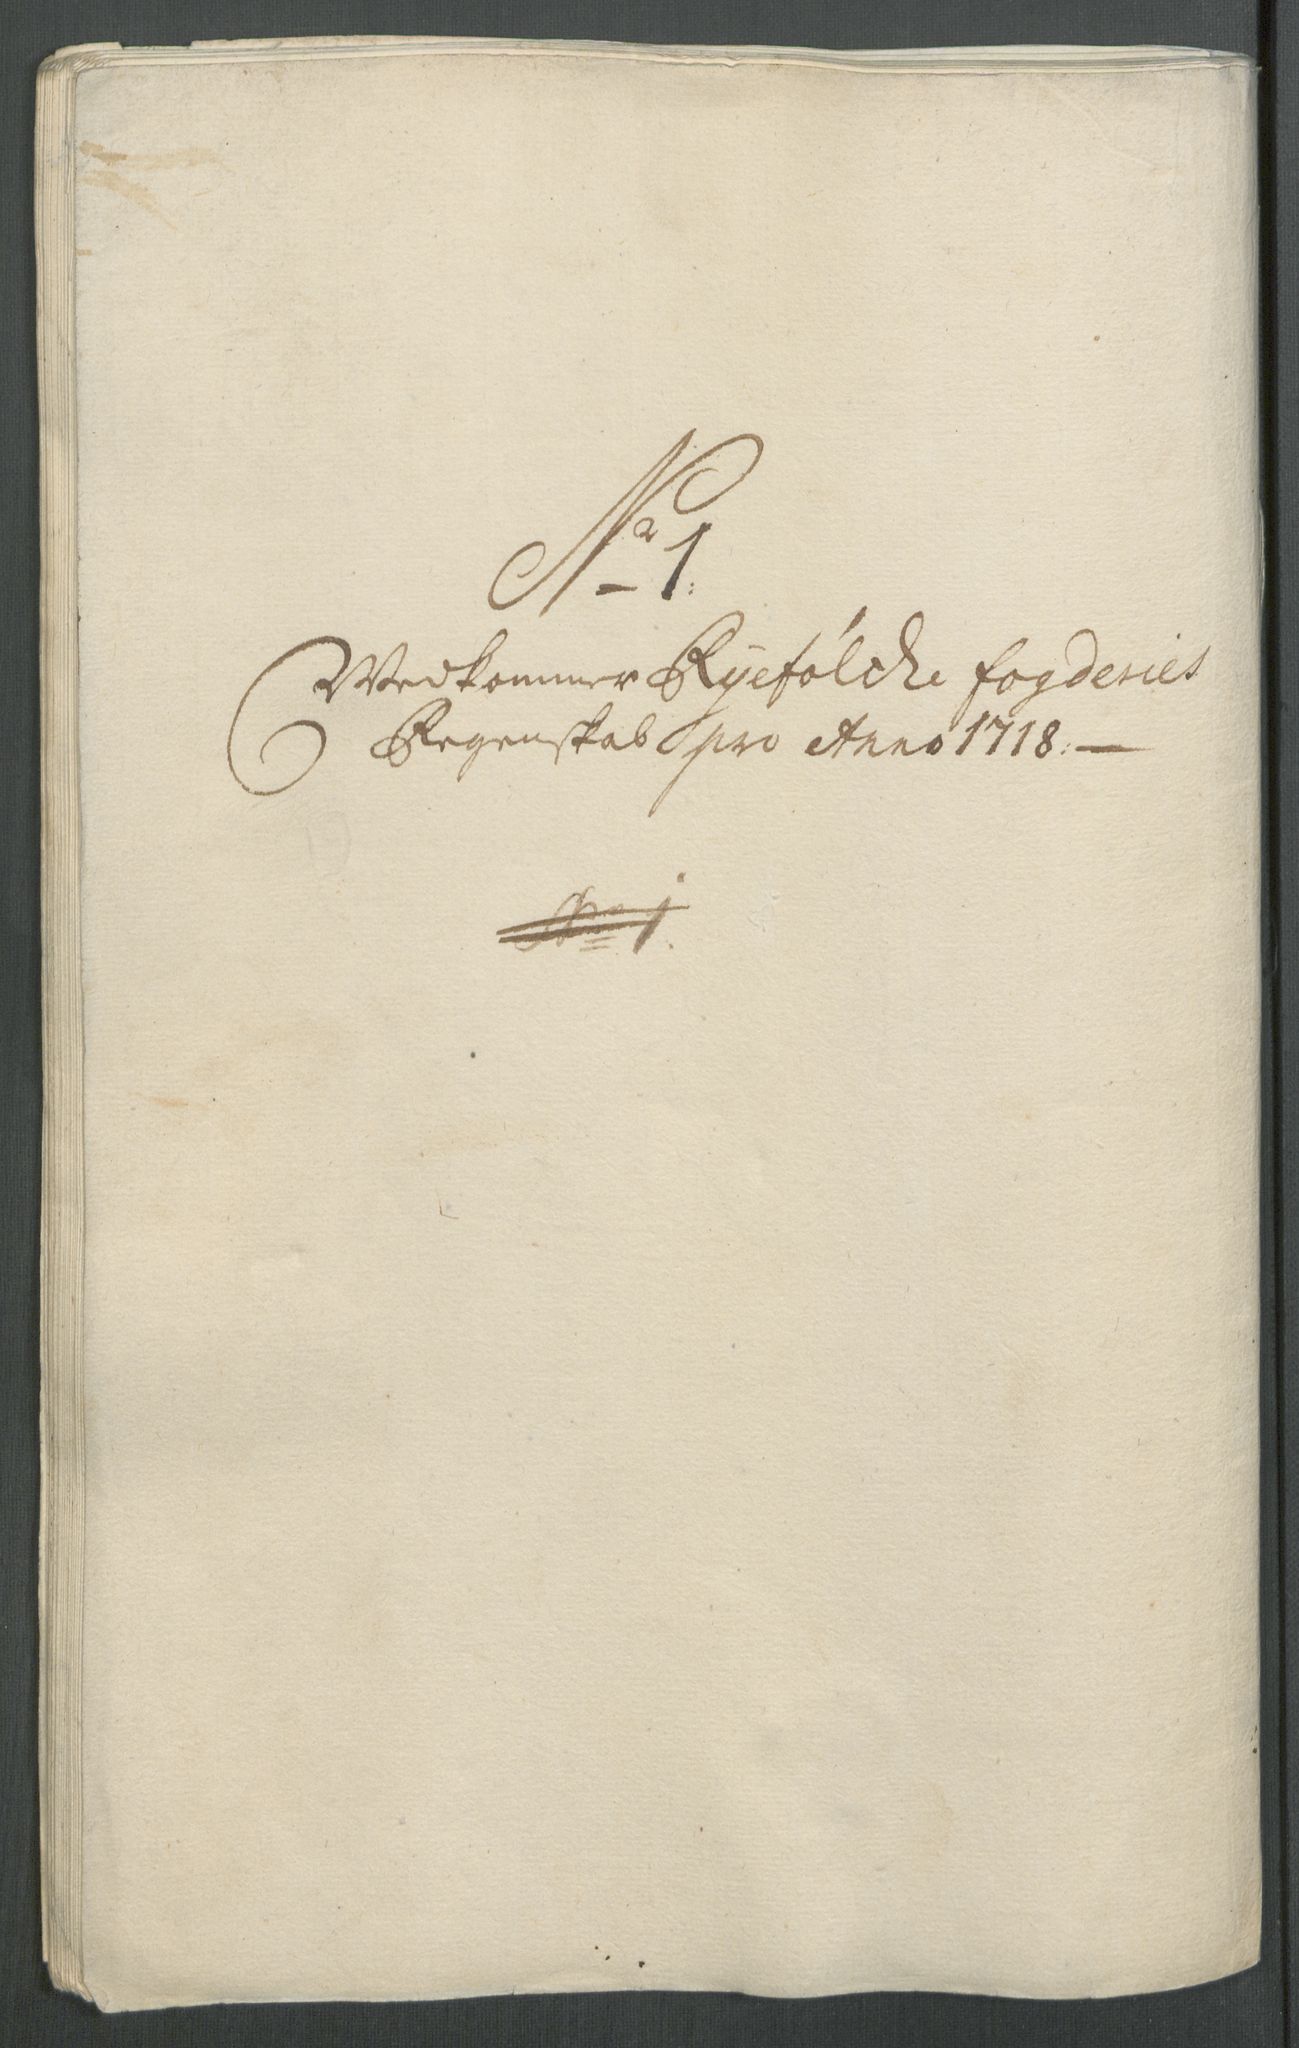 No 1.
Vedkommer Ryefölche fogderies
Regenskab pro Anno 1718. —
No 1.